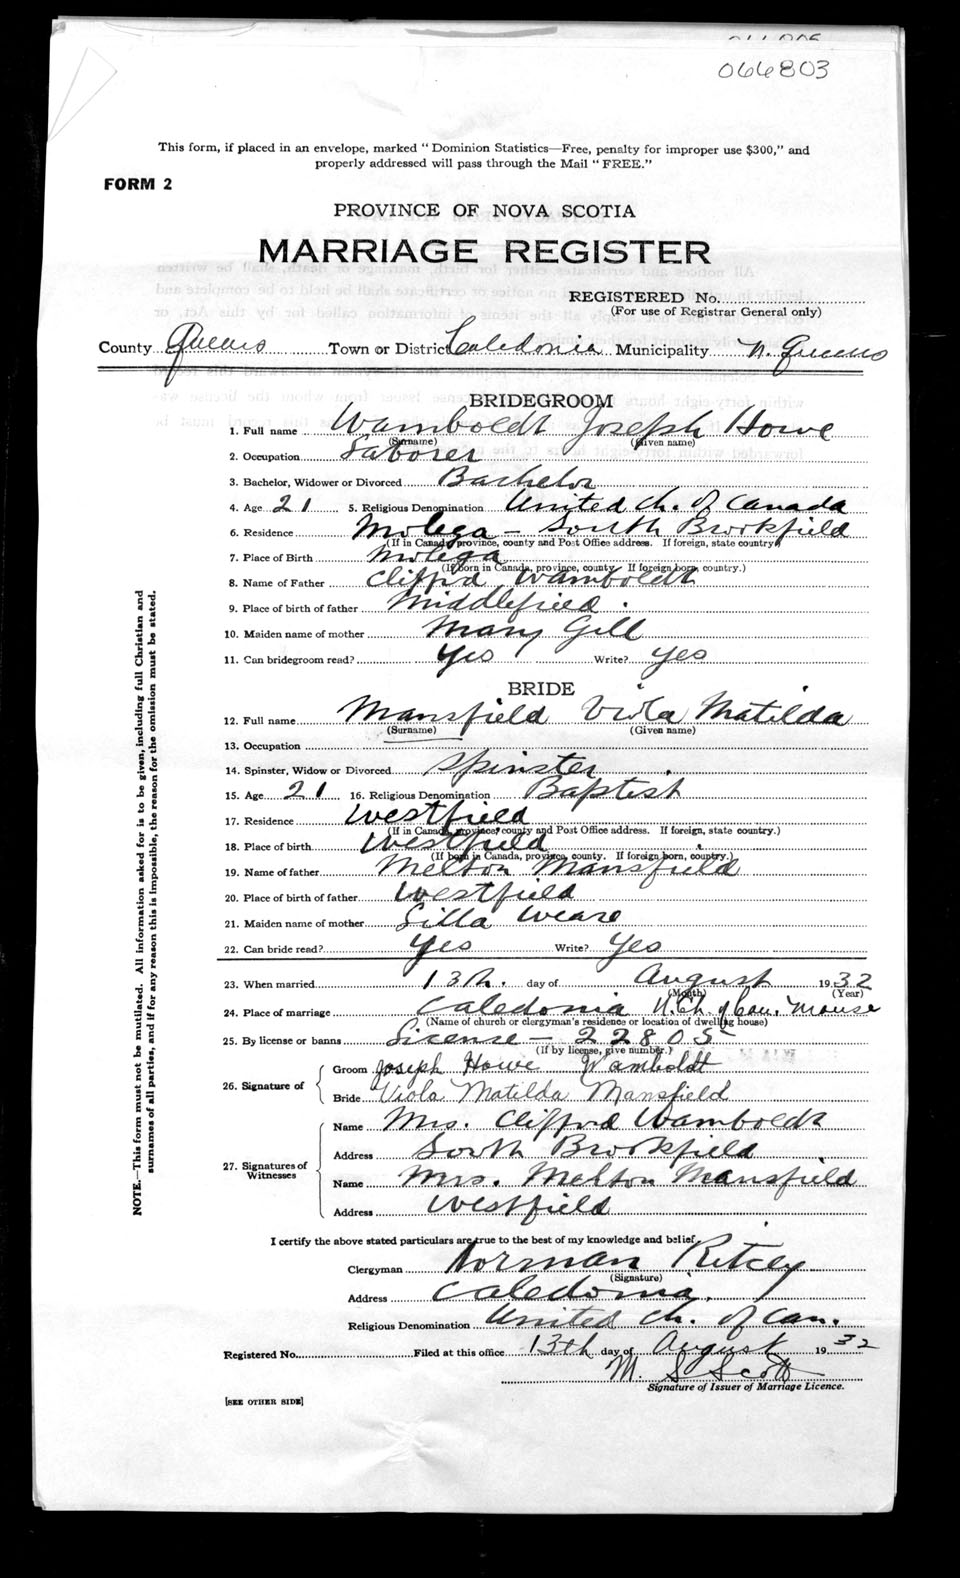 066803
This form, if placed in an envelope, marked "Dominion Statistics—Free, penalty for improper use $300," and
properly addressed will pass through the Mail "FREE."
FORM 2
PROVINCE OF NOVA SCOTIA
MARRIAGE REGISTER
REGISTERED No.
(For use of Registrar General only)
County Queens Town or District Caledonia Municipality N. Queens
BRIDEGROOM
1. Full name Wamboldt Joseph Howe
(Surname) (Given name)
2. Occupation Laborer
3. Bachelor, Widower or Divorced Bachelor
4. Age 21 5. Religious Denomination United Ch. of Canada
6. Residence Molega - South Brookfield
(If in Canada, province, county and Post Office address. If foreign, state country)
7. Place of Birth Molega
(If born in Canada, province, county. If foreign born, country.)
8. Name of Father Clifford Wamboldt
9. Place of birth of father Middlefield.
10. Maiden name of mother Mary Gill
11. Can bridegroom read? Yes Write? Yes
BRIDE
12. Full name Mansfield Viola Matilda
(Surname) (Given name)
13. Occupation
14. Spinster, Widow or Divorced Spinster
15. Age 21 16. Religious Denomination Baptist
17. Residence Westfield
(If in Canada, province, county and Post Office address. If foreign, state country.)
18. Place of birth Westfield
(If born in Canada, province, county. If foreign born, country.)
19. Name of father Melton Mansfield
20. Place of birth of father Westfield
21. Maiden name of mother Lilla Weare
22. Can bride read? Yes Write? Yes
23. When married 13th. day of August 1932
(Month) (Year)
24. Place of marriage Caledonia U. Ch. of Can. Manse
(Name of church or clergyman's residence or location of dwelling house)
25. By license or banns License - 22805
(If by license, give number.)
26. Signature of Groom Joseph Howe Wamboldt
Bride Viola Matilda Mansfield
27. Signatures of Witnesses
Name Mrs. Clifford Wamboldt
Address South Brookfield
Name Mrs. Melton Mansfield
Address Westfield
I certify the above stated particulars are true to the best of my knowledge and belief.
Clergyman Norman Ritcey
(Signature)
Address Caledonia.
Religious Denomination United Ch. of Can.
Registered No. Filed at this office 13th day of August 1932
M. S. Scott
Signature of Issuer of Marriage Licence.
[SEE OTHER SIDE]
NOTE.—This form must not be mutilated. All information asked for is to be given, including full Christian and
surnames of all parties, and if for any reason this is impossible, the reason for the omission must be stated.